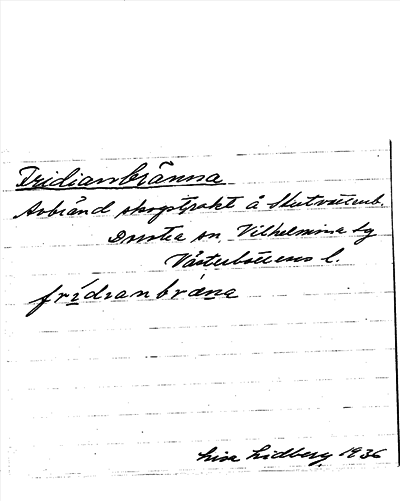 Fridianbränna
Avbränd skogstrakt å Skutvattenb.
Dorotea sn. Vilhelmina tg
Västerbottens l.
fridianbräna
Lisa Lidberg 1936